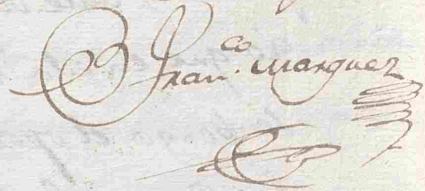 Franco. Marquez